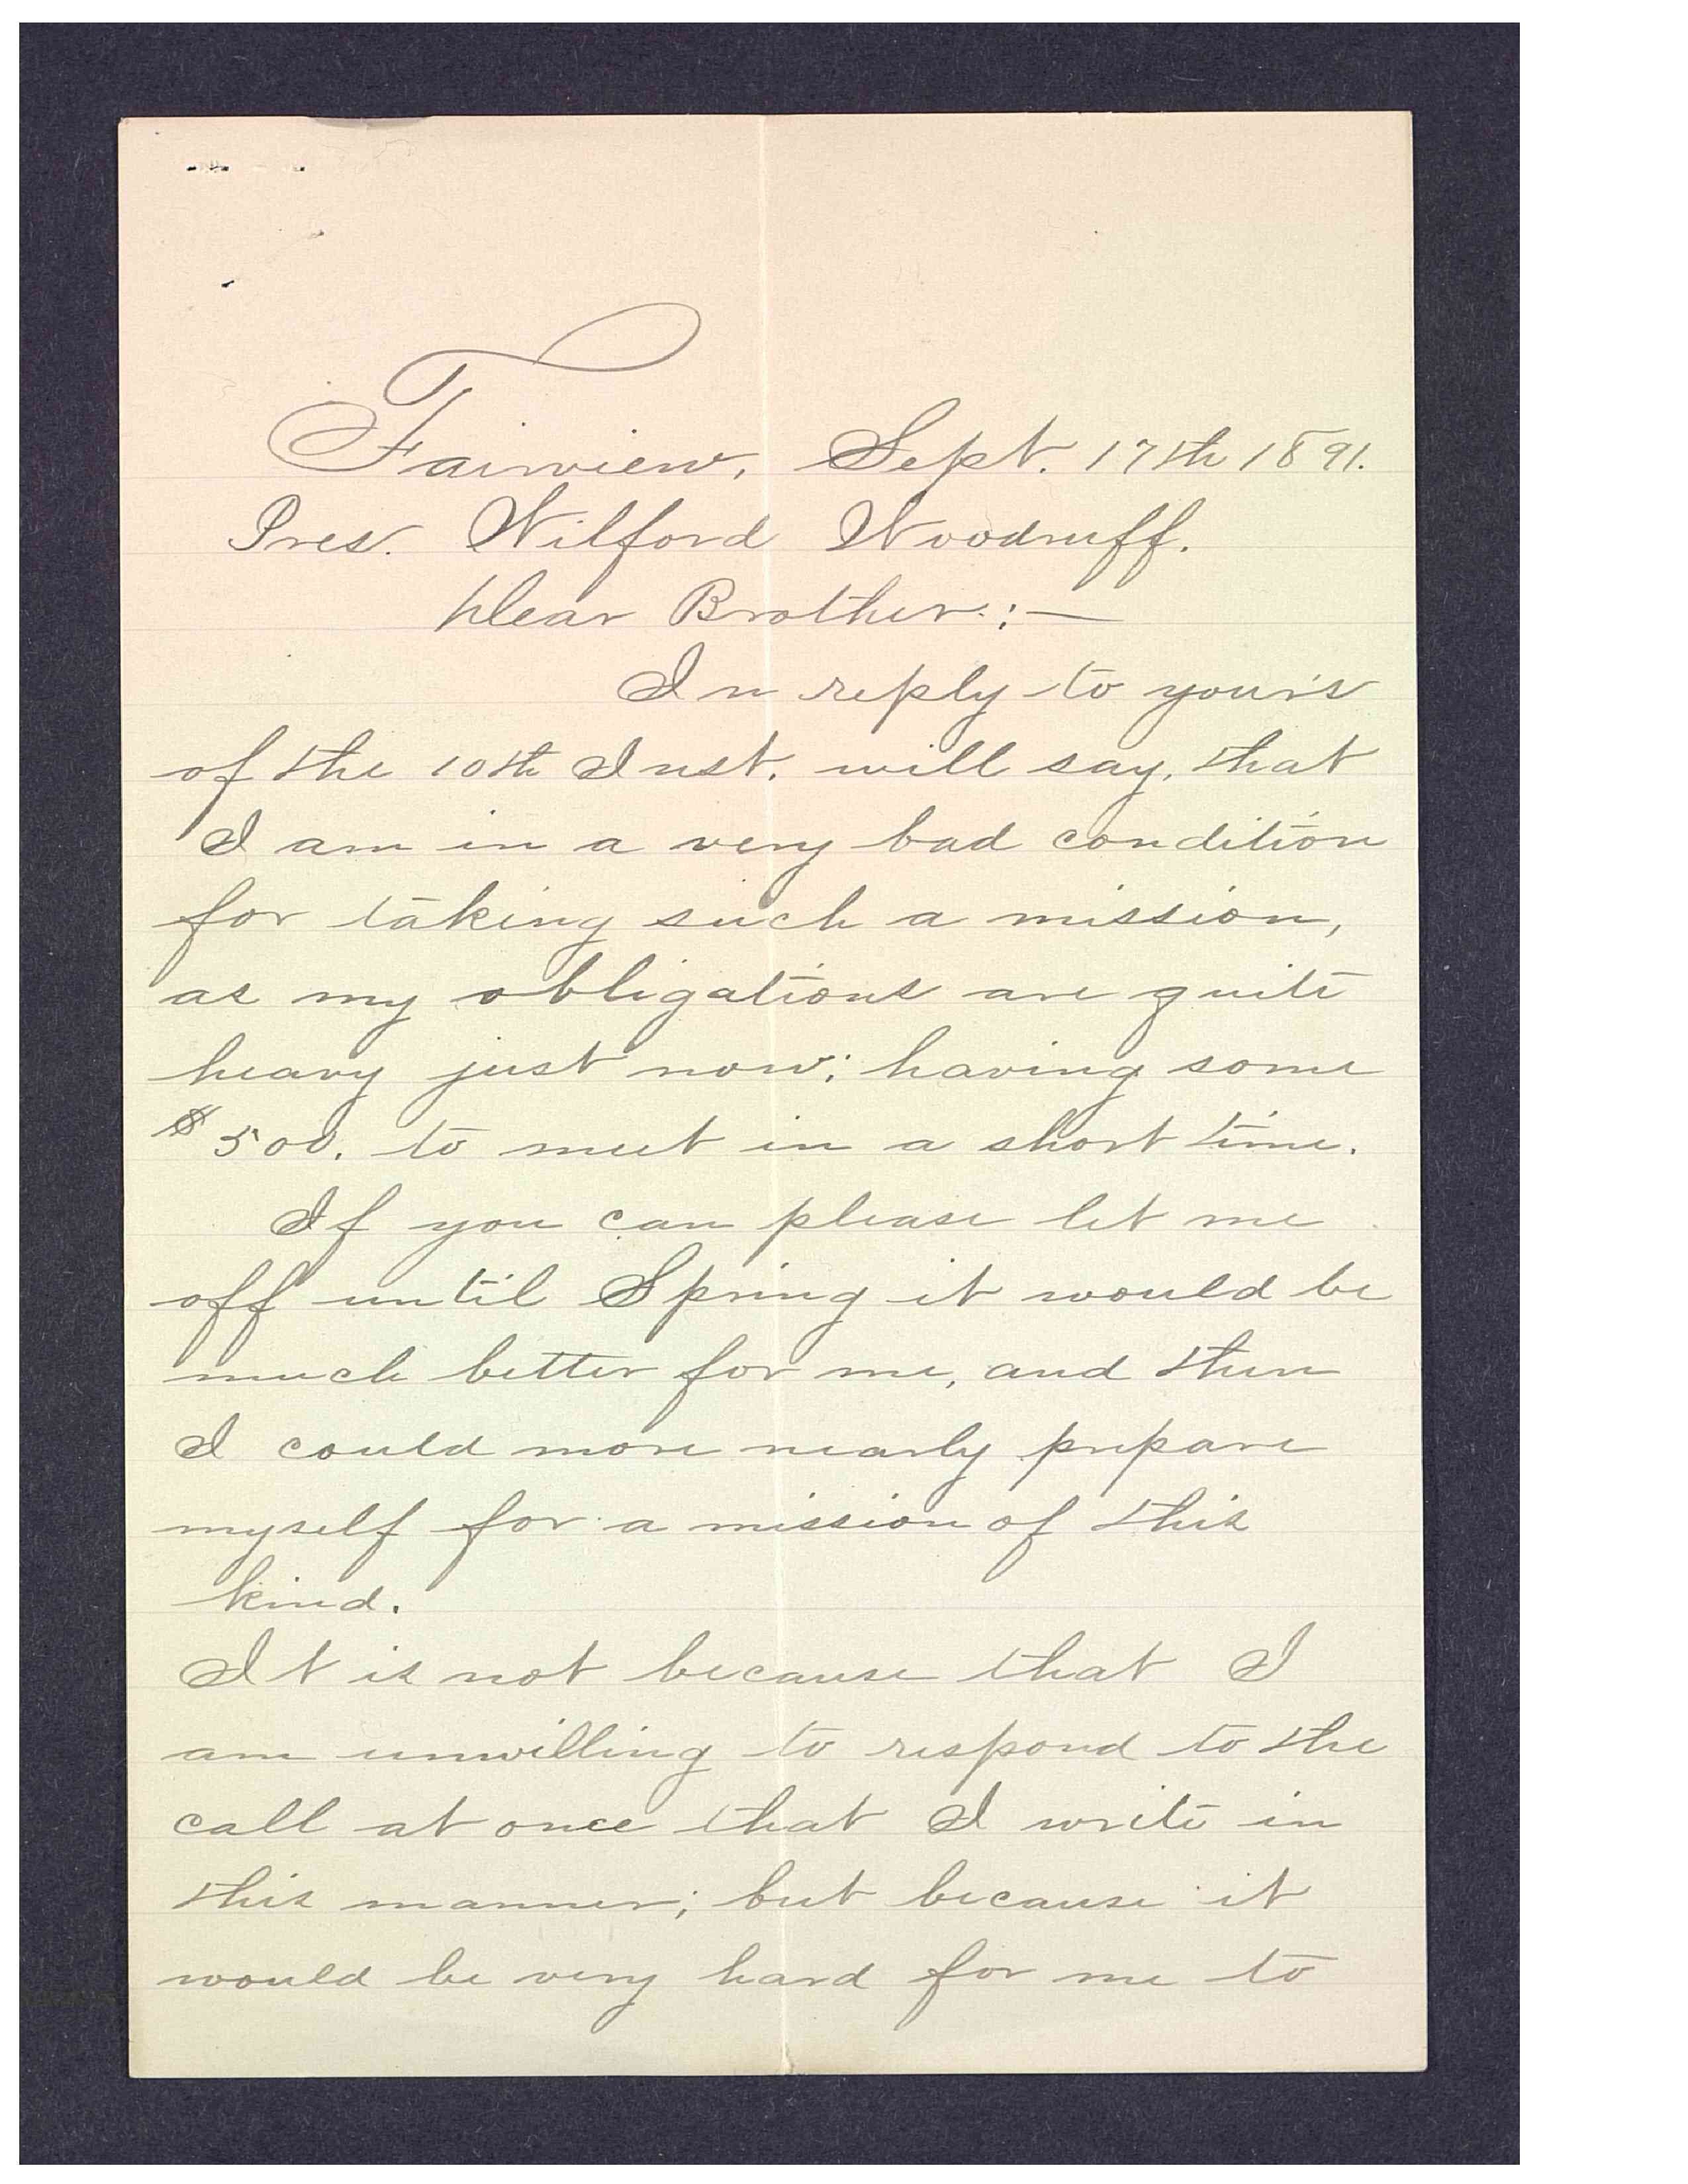 Fairview, Sept. 17th 1891.
Pres. Wilford Woodruff.
Dear Brother.:—
In reply to your's
of the 10th Inst. will say, that
I am in a very bad condition
for taking such a mission,
as my obligations are quite
heavy just now; having some
$500. to meet in a short time.
If you can please let me
off until Spring it would be
much better for me, and then
I could more nearly prepare
myself for a mission of this
kind.
It is not because that I
am unwilling to respond to the
call at once that I write in
this manner; but because it
would be very hard for me to